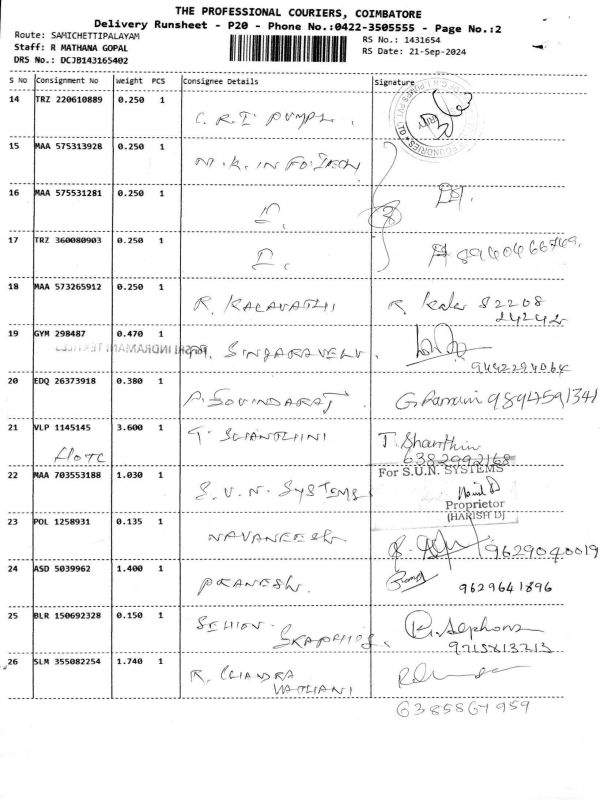 THE PROFESSIONAL COURIERS, COIMBATORE
Delivery Runsheet - P20 - Phone No.:0422-3505555 - Page No.:2
Route: SAMICHETTIPALAYAM
RS No.: 1431654
Staff: R MATHANA GOPAL
RS Date: 21-Sep-2024
DRS No.: DCJB143165402
S No Consignment No Weight PCS Consignee Details Signature
14 TRZ 220610889 0.250 1 C.R.I PUMPS.
15 MAA 575313928 0.250 1 M.K. INFOTECH
16 MAA 575531281 0.250 1
17 TRZ 360080903 0.250 1
18 MAA 573265912 0.250 1 R. KALAVATHI R. Kala 82208
24242
19 GYM 298487 0.470 1 SINGARAVELU.
9442294064
20 EDQ 26373918 0.380 1 9894591341
21 VLP 1145145 3.600 1 T. SHANTHINI T. Shanthini
6382992168
22 MAA 703553188 1.030 1 S.U.N. SYSTEMS For S.U.N. SYSTEMS
Proprietor
(HARISH D)
23 POL 1258931 0.135 1 NAVANEESH 9629040019
24 ASD 5039962 1.400 1 PRANESH. 9629641896
25 BLR 150692328 0.150 1
9715813213
26 SLM 355082254 1.740 1 R. CHANDRA
VATHANI
6385867959